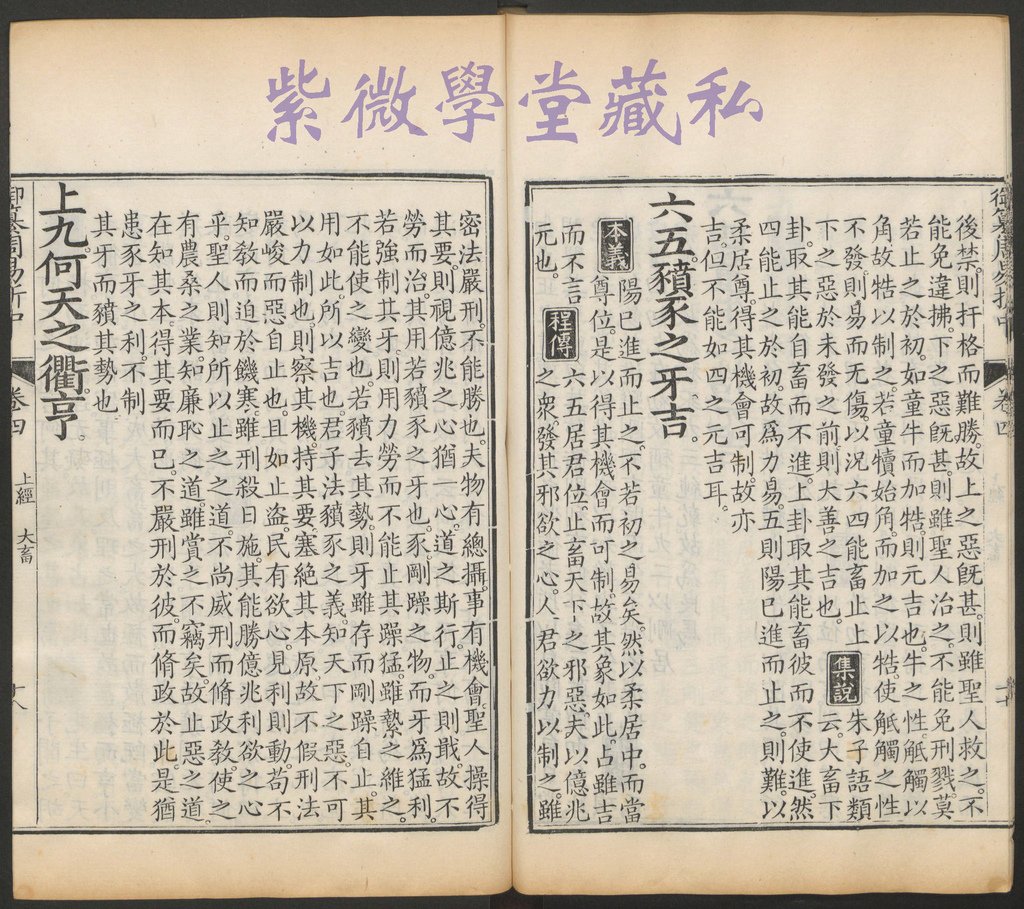 紫微學堂藏私
後禁則扞格而難勝故上之惡旣甚則雖聖人救之不
能免違拂下之惡旣甚則雖聖人治之不能免刑戮莫
若止之於初如童牛而加牿則元吉也牛之性觝觸以
角故牿以制之若童犢始角而加之以牿使觝觸之性
不發則易而无傷以况六四能畜止上
下之惡於未發之前則大善之吉也 集說 朱子語類云大畜下
卦取其能自畜而不進上卦取其能畜彼而不使進然
四能止之於初故爲力易五則陽已進而止之則難以
柔居尊得其機會可制故亦
吉但不能如四之元吉耳
六五豶豕之牙吉
本義 陽已進而止之不若初之易矣然以柔居中而當
尊位是以得其機會而可制故其象如此占雖吉
而不言
元也 程傳 六五居君位止畜天下之邪惡夫以億兆
之衆發其邪欲之心人君欲力以制之雖
卷四
密法嚴刑不能勝也夫物有總攝事有機會聖人操得
其要則視億兆之心猶一心道之斯行止之則戢故不
勞而治其用若豶豕之牙也豕剛躁之物而牙爲猛利
若強制其牙則用力勞而不能止其躁猛雖縶之維之
不能使之變也若豶去其勢則牙雖存而剛躁自止其
用如此所以吉也君子法豶豕之義知天下之惡不可
以力制也則察其機持其要塞絕其本原故不假刑法
嚴峻而惡自止也且如止盜民有欲心見利則動苟不
知敎而迫於饑寒雖刑殺日施其能勝億兆利欲之心
乎聖人則知所以止之之道不尚威刑而脩政敎使之
有農桑之業知廉恥之道雖賞之不竊矣故止惡之道
在知其本得其要而已不嚴刑於彼而脩政於此是猶
患豕牙之利不制
其牙而豶其勢也
上九何天之衢亨
卷四 上經 大畜 十八